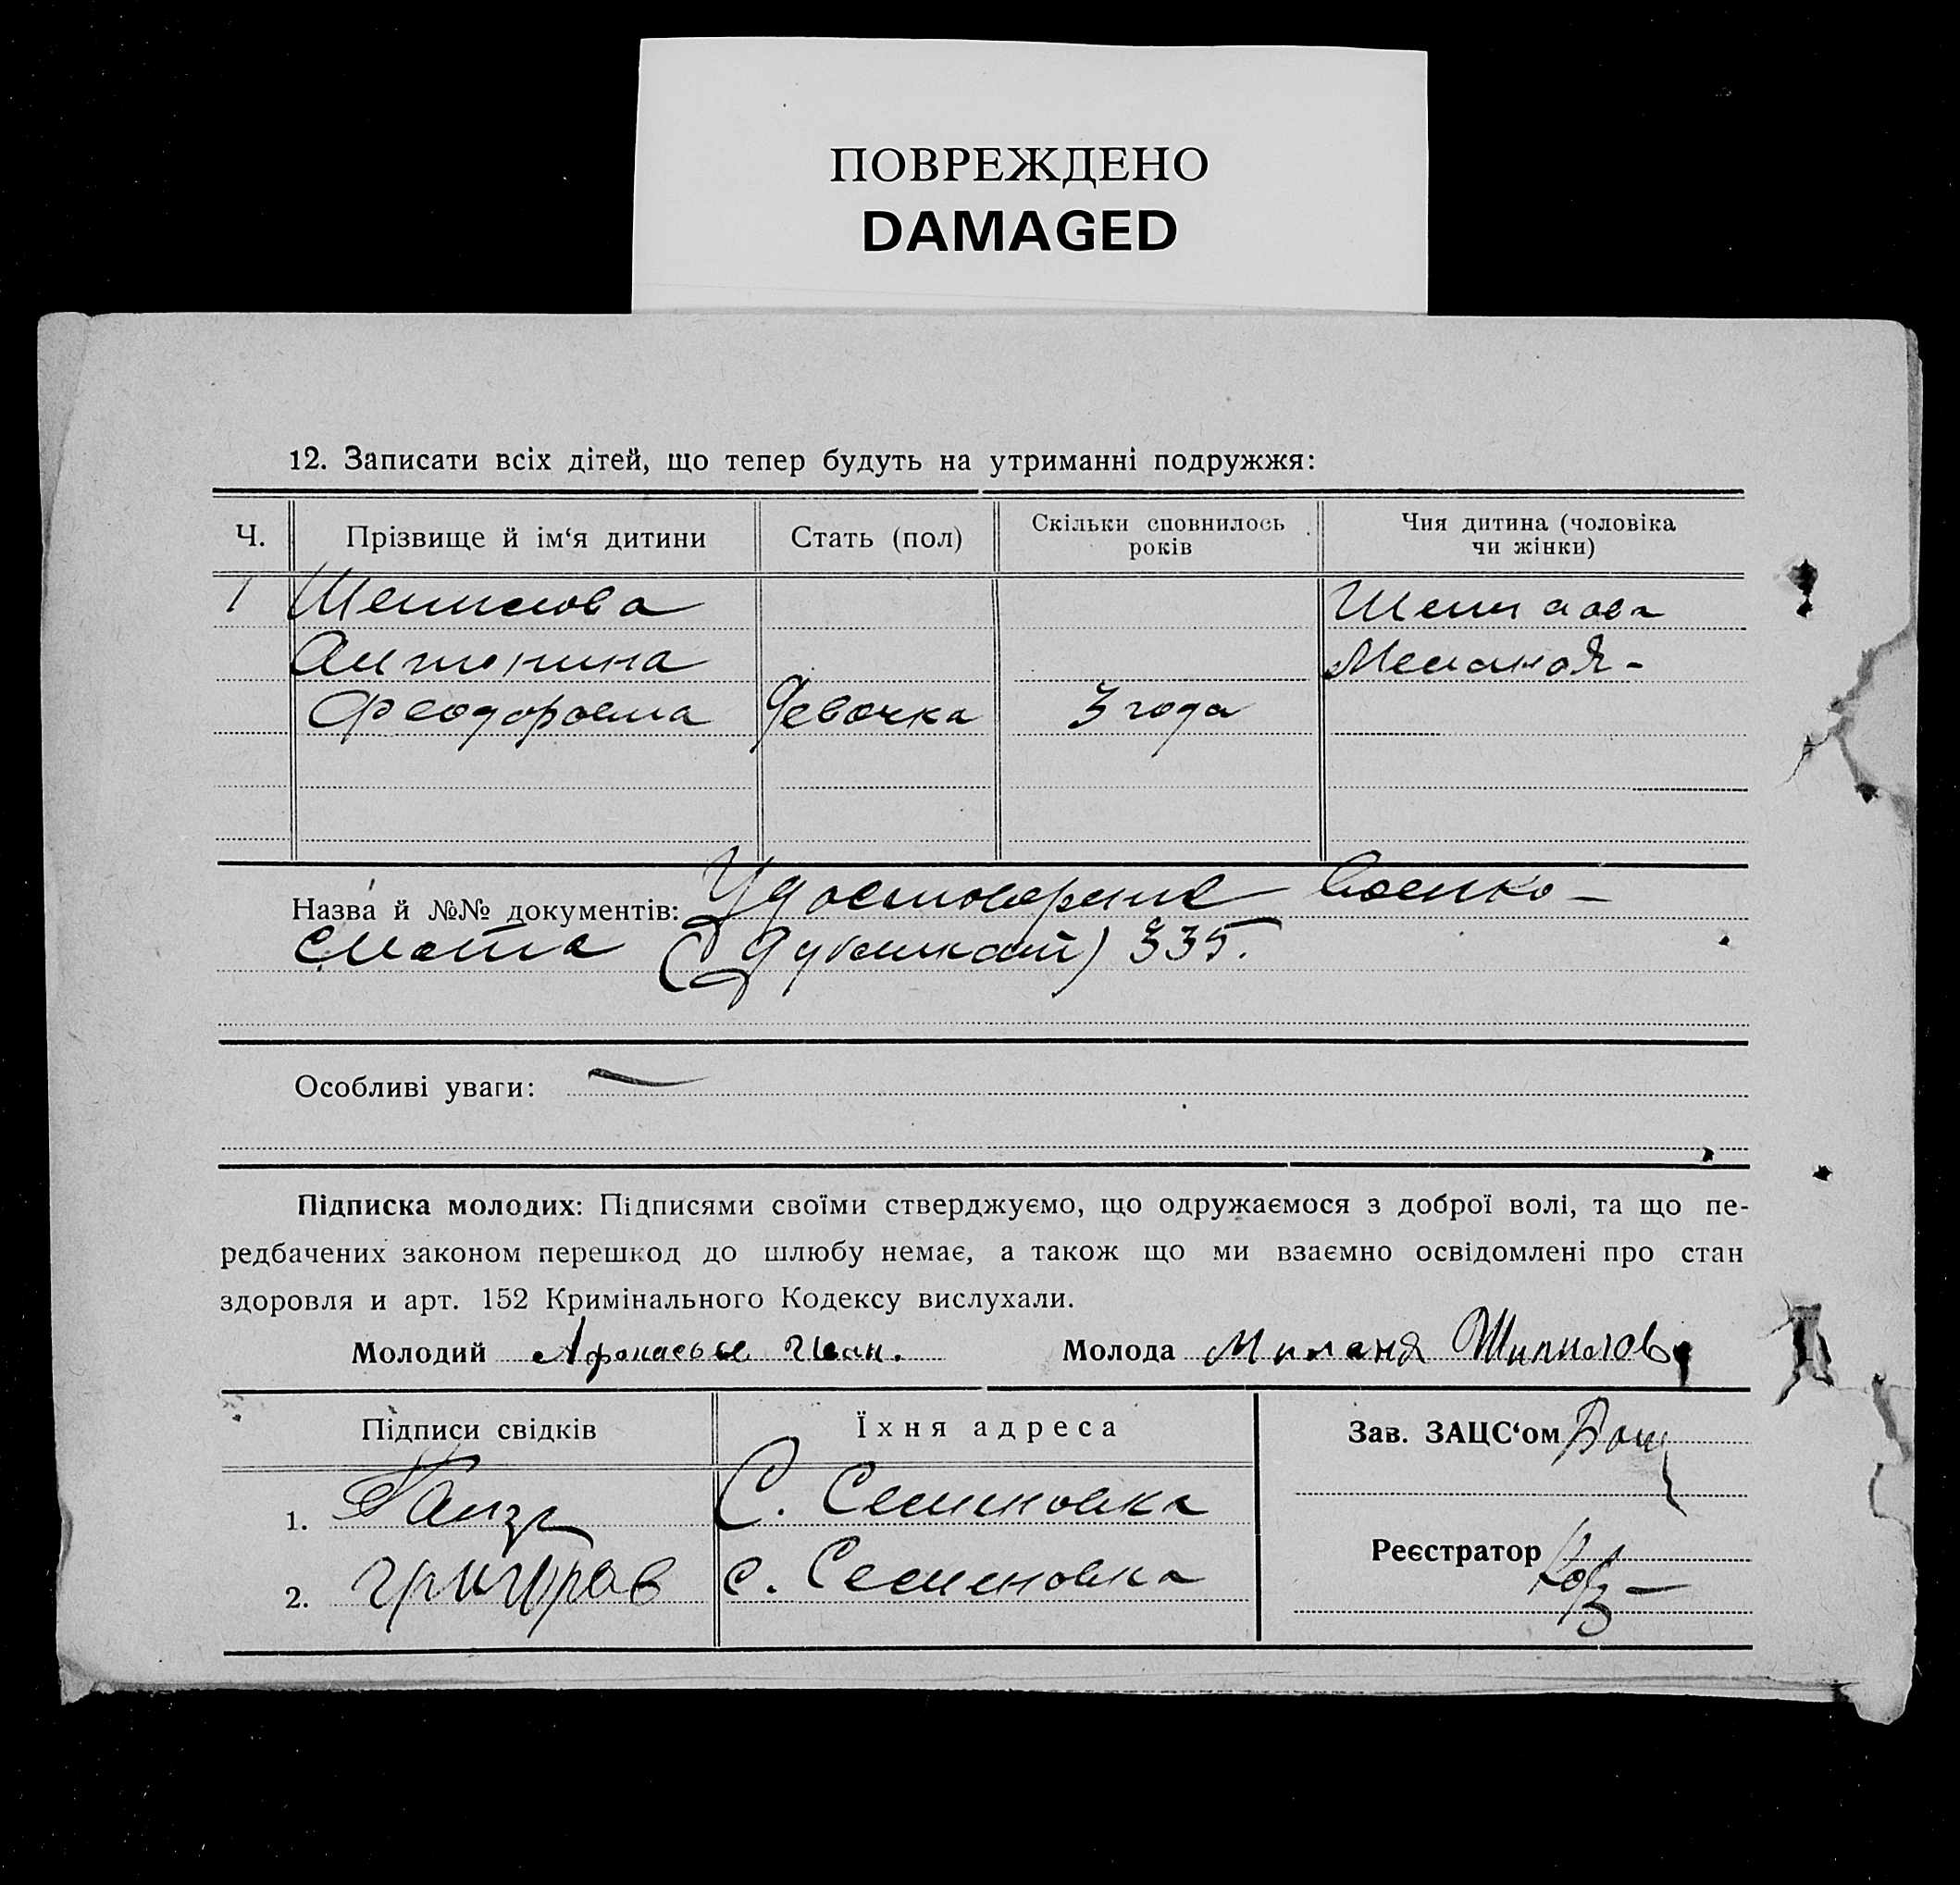 ПОВРЕЖДЕНО
DAMAGED
12. Записати всіх дітей, що тепер будуть на утриманні подружжя:
Ч. Прізвище й ім‘я дитини Стать (пол) Скільки сповнилось років Чия дитина (чоловіка чи жінки)
1
Антонина
Феодоровна Девочка 3 года
Назва й №№ документів: Удостоверение Военко-
мата 335.
Особливі уваги: —
Підписка молодих: Підписями своїми стверджуємо, що одружаємося з доброї волі, та що пе-
редбачених законом перешкод до шлюбу немає, а також що ми взаємно освідомлені про стан
здоровля и арт. 152 Кримінального Кодексу вислухали.
Молодий Афанасьев Иван. Молода Миланя Шипилова
Підписи свідків Їхня адреса Зав. ЗАЦС‘ом
1. С. Семеновка
Реєстратор
2. с. Семеновка